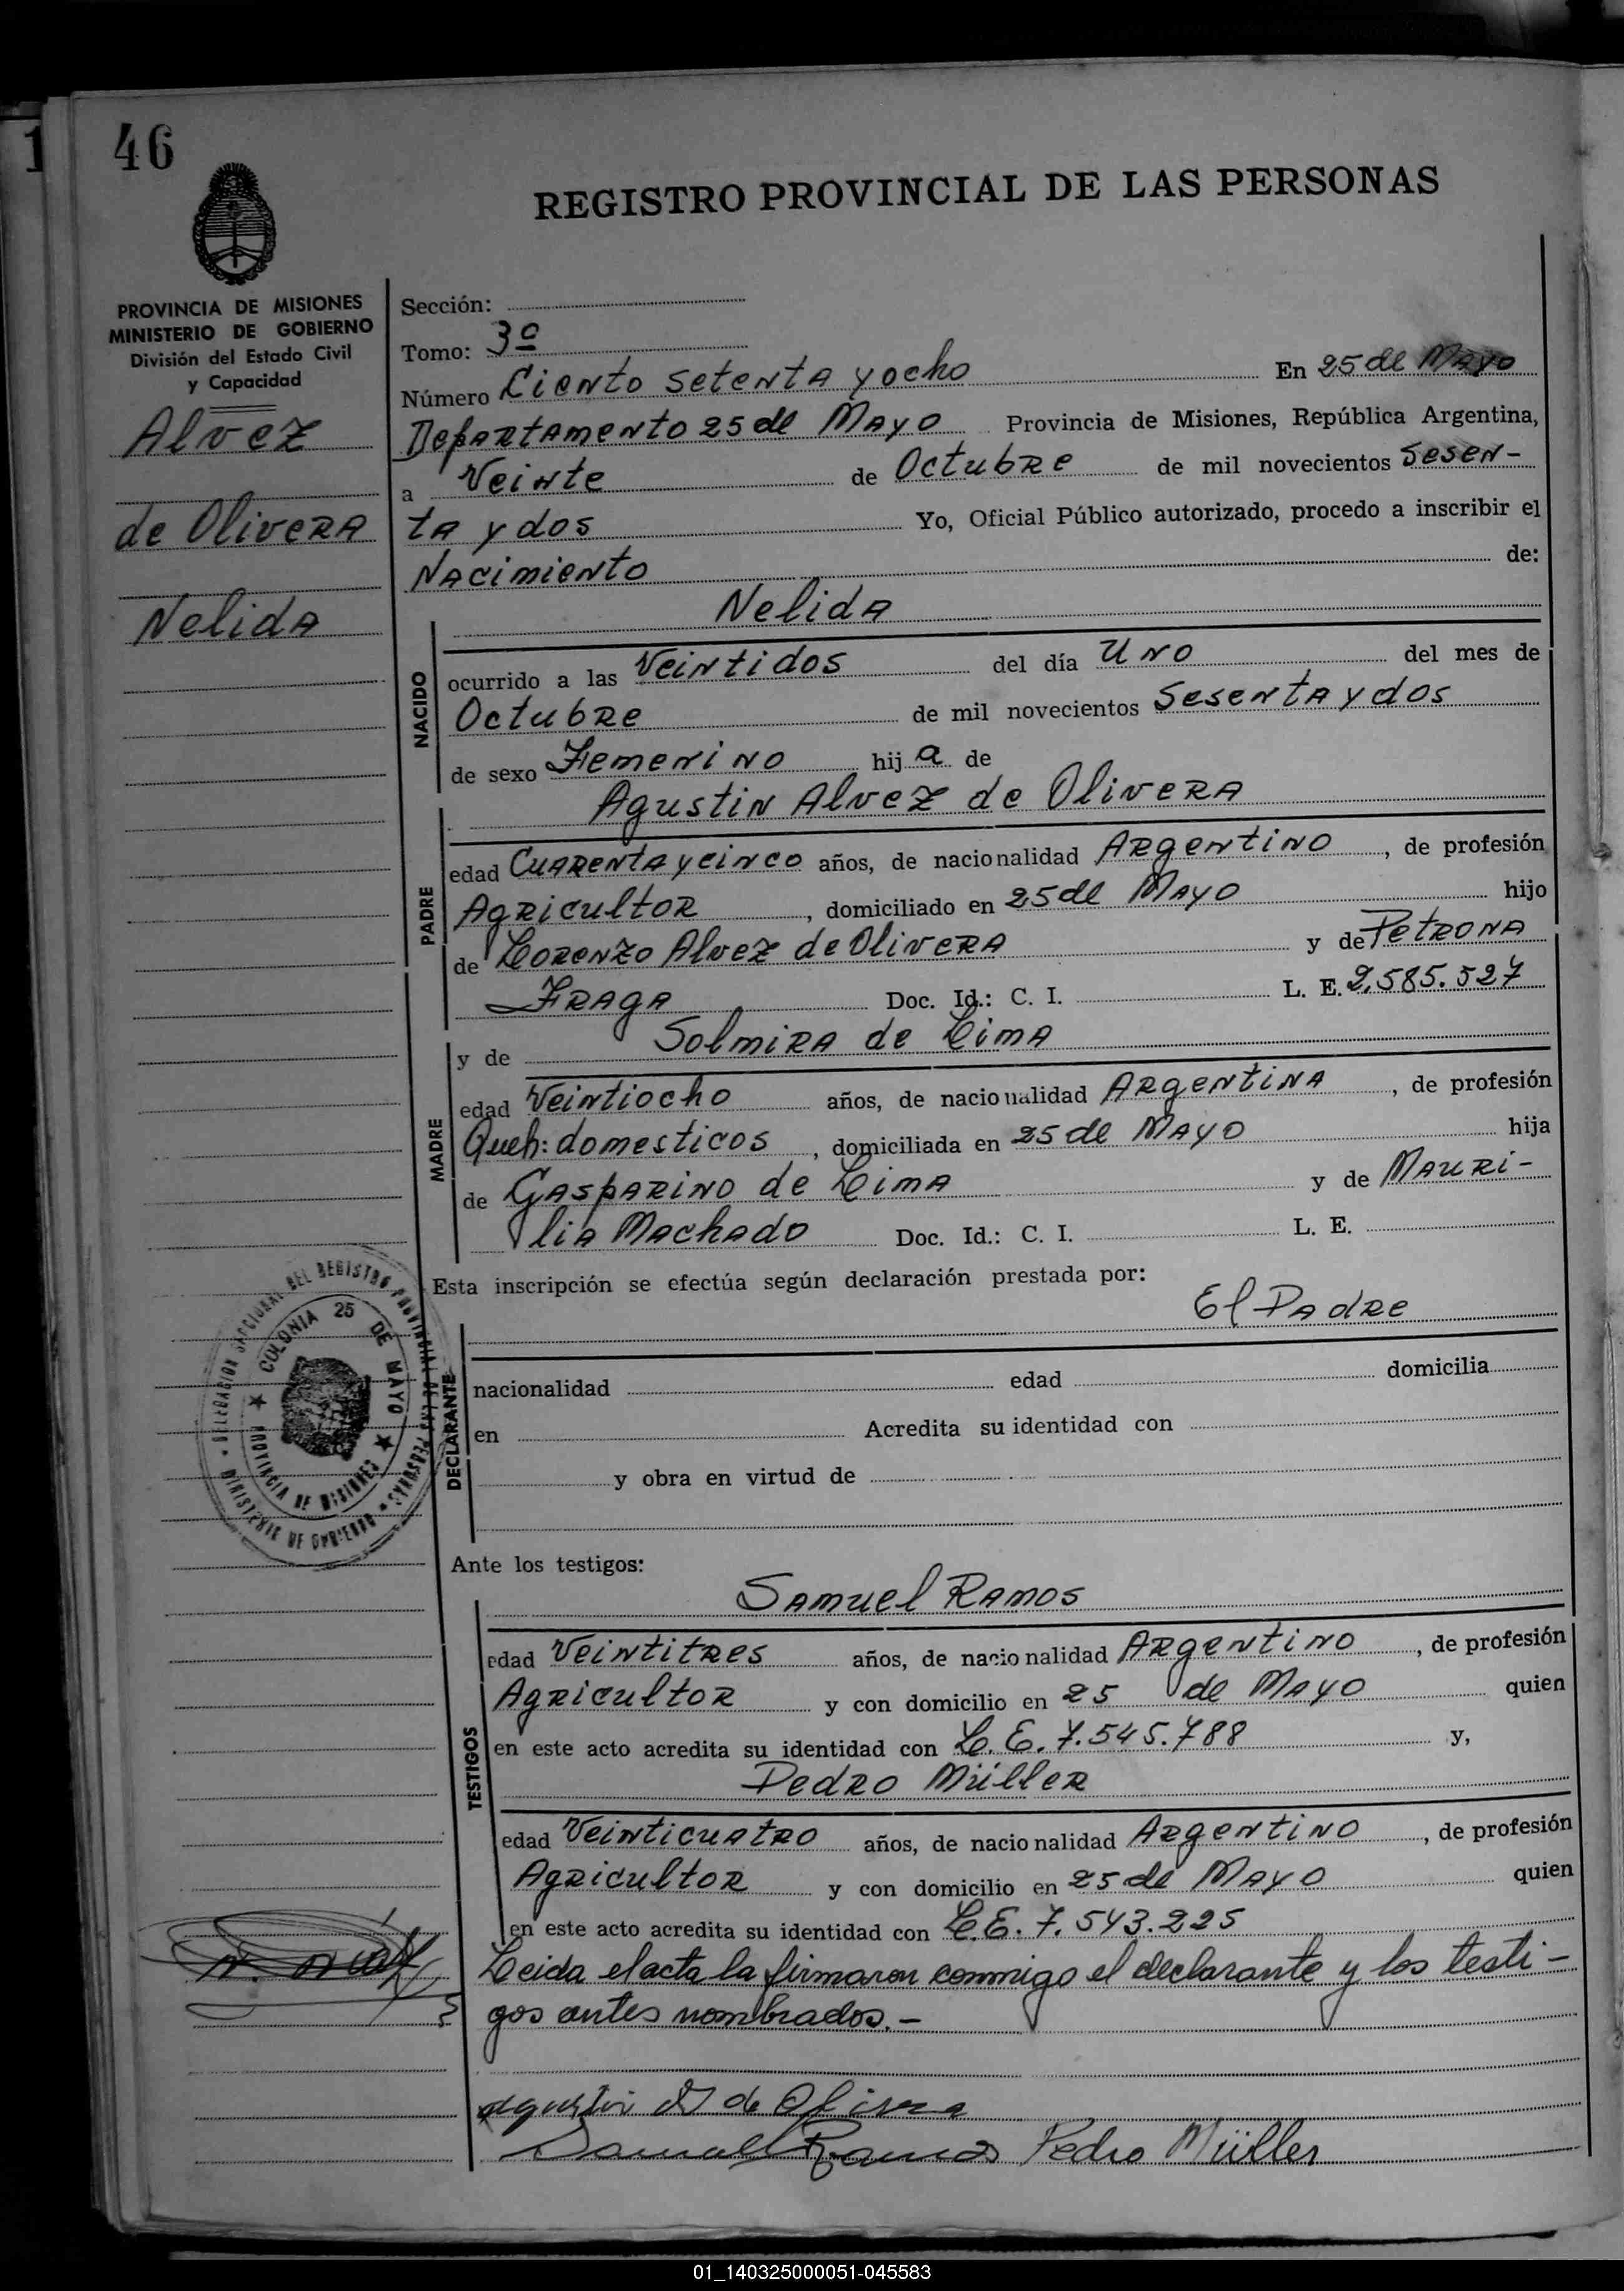 46
REGISTRO PROVINCIAL DE LAS PERSONAS
PROVINCIA DE MISIONES
MINISTERIO DE GOBIERNO
División del Estado Civil
y Capacidad
Alvez
de Olivera
Nelida
Sección:
Tomo: 3º
Número Ciento setenta y ocho En 25 de Mayo
Departamento 25 de Mayo Provincia de Misiones, República Argentina,
a Veinte de Octubre de mil novecientos Sesen-
ta y dos Yo, Oficial Público autorizado, procedo a inscribir el
Nacimiento de:
Nelida
NACIDO
ocurrido a las Veintidos del día Uno del mes de
Octubre de mil novecientos Sesenta y dos
de sexo Femenino hij a de
Agustin Alvez de Olivera
PADRE
edad Cuarenta y cinco años, de nacionalidad Argentino, de profesión
Agricultor, domiciliado en 25 de Mayo hijo
de Lorenzo Alvez de Olivera y de Petrona
Fraga Doc. Id.: C. I. L. E. 2.585.527
y de Solmira de Lima
MADRE
edad Veintiocho años, de nacionalidad Argentina, de profesión
Queh: domesticos, domiciliada en 25 de Mayo hija
de Gasparino de Lima y de Mauri-
lia Machado Doc. Id.: C. I. L. E.
Esta inscripción se efectúa según declaración prestada por:
El Padre
DECLARANTE
nacionalidad edad domicilia
en Acredita su identidad con
y obra en virtud de
DELEGACION SECCIONAL DEL REGISTRO PROVINCIAL DE LAS PERSONAS
MINISTERIO DE GOBIERNO
COLONIA 25 DE MAYO
PROVINCIA DE MISIONES
Ante los testigos:
Samuel Ramos
TESTIGOS
edad Veintitres años, de nacionalidad Argentino, de profesión
Agricultor y con domicilio en 25 de Mayo quien
en este acto acredita su identidad con L. E. 7.545.788 y,
Pedro Müller
edad Veinticuatro años, de nacionalidad Argentino, de profesión
Agricultor y con domicilio en 25 de Mayo quien
en este acto acredita su identidad con L.E. 7.543.225
Leida el acta la firmaron conmigo el declarante y los testi-
gos antes nombrados.-
Agustin de Olivera
Samuel Ramos Pedro Müller
01_140325000051-045583